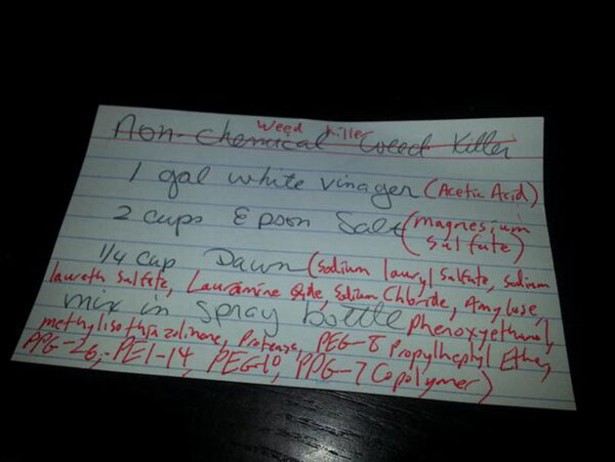 Weed Killer
Non-Chemical Weed Killer
1 gal white vinager (Acetic Acid)
2 cups Epson Salt (magnesium
sulfate)
1/4 cup Dawn (sodium lauryl sulfate, sodium
laureth sulfate, Lauramine Oxide, Sodium Chloride, Amylase,
mix in spray bottle phenoxyethanol,
methylisothiazolinone, Protease, PEG-8 Propylheptyl Ether,
PPG-26, -PEI-14, PEG-10, PPG-7 Copolymer)